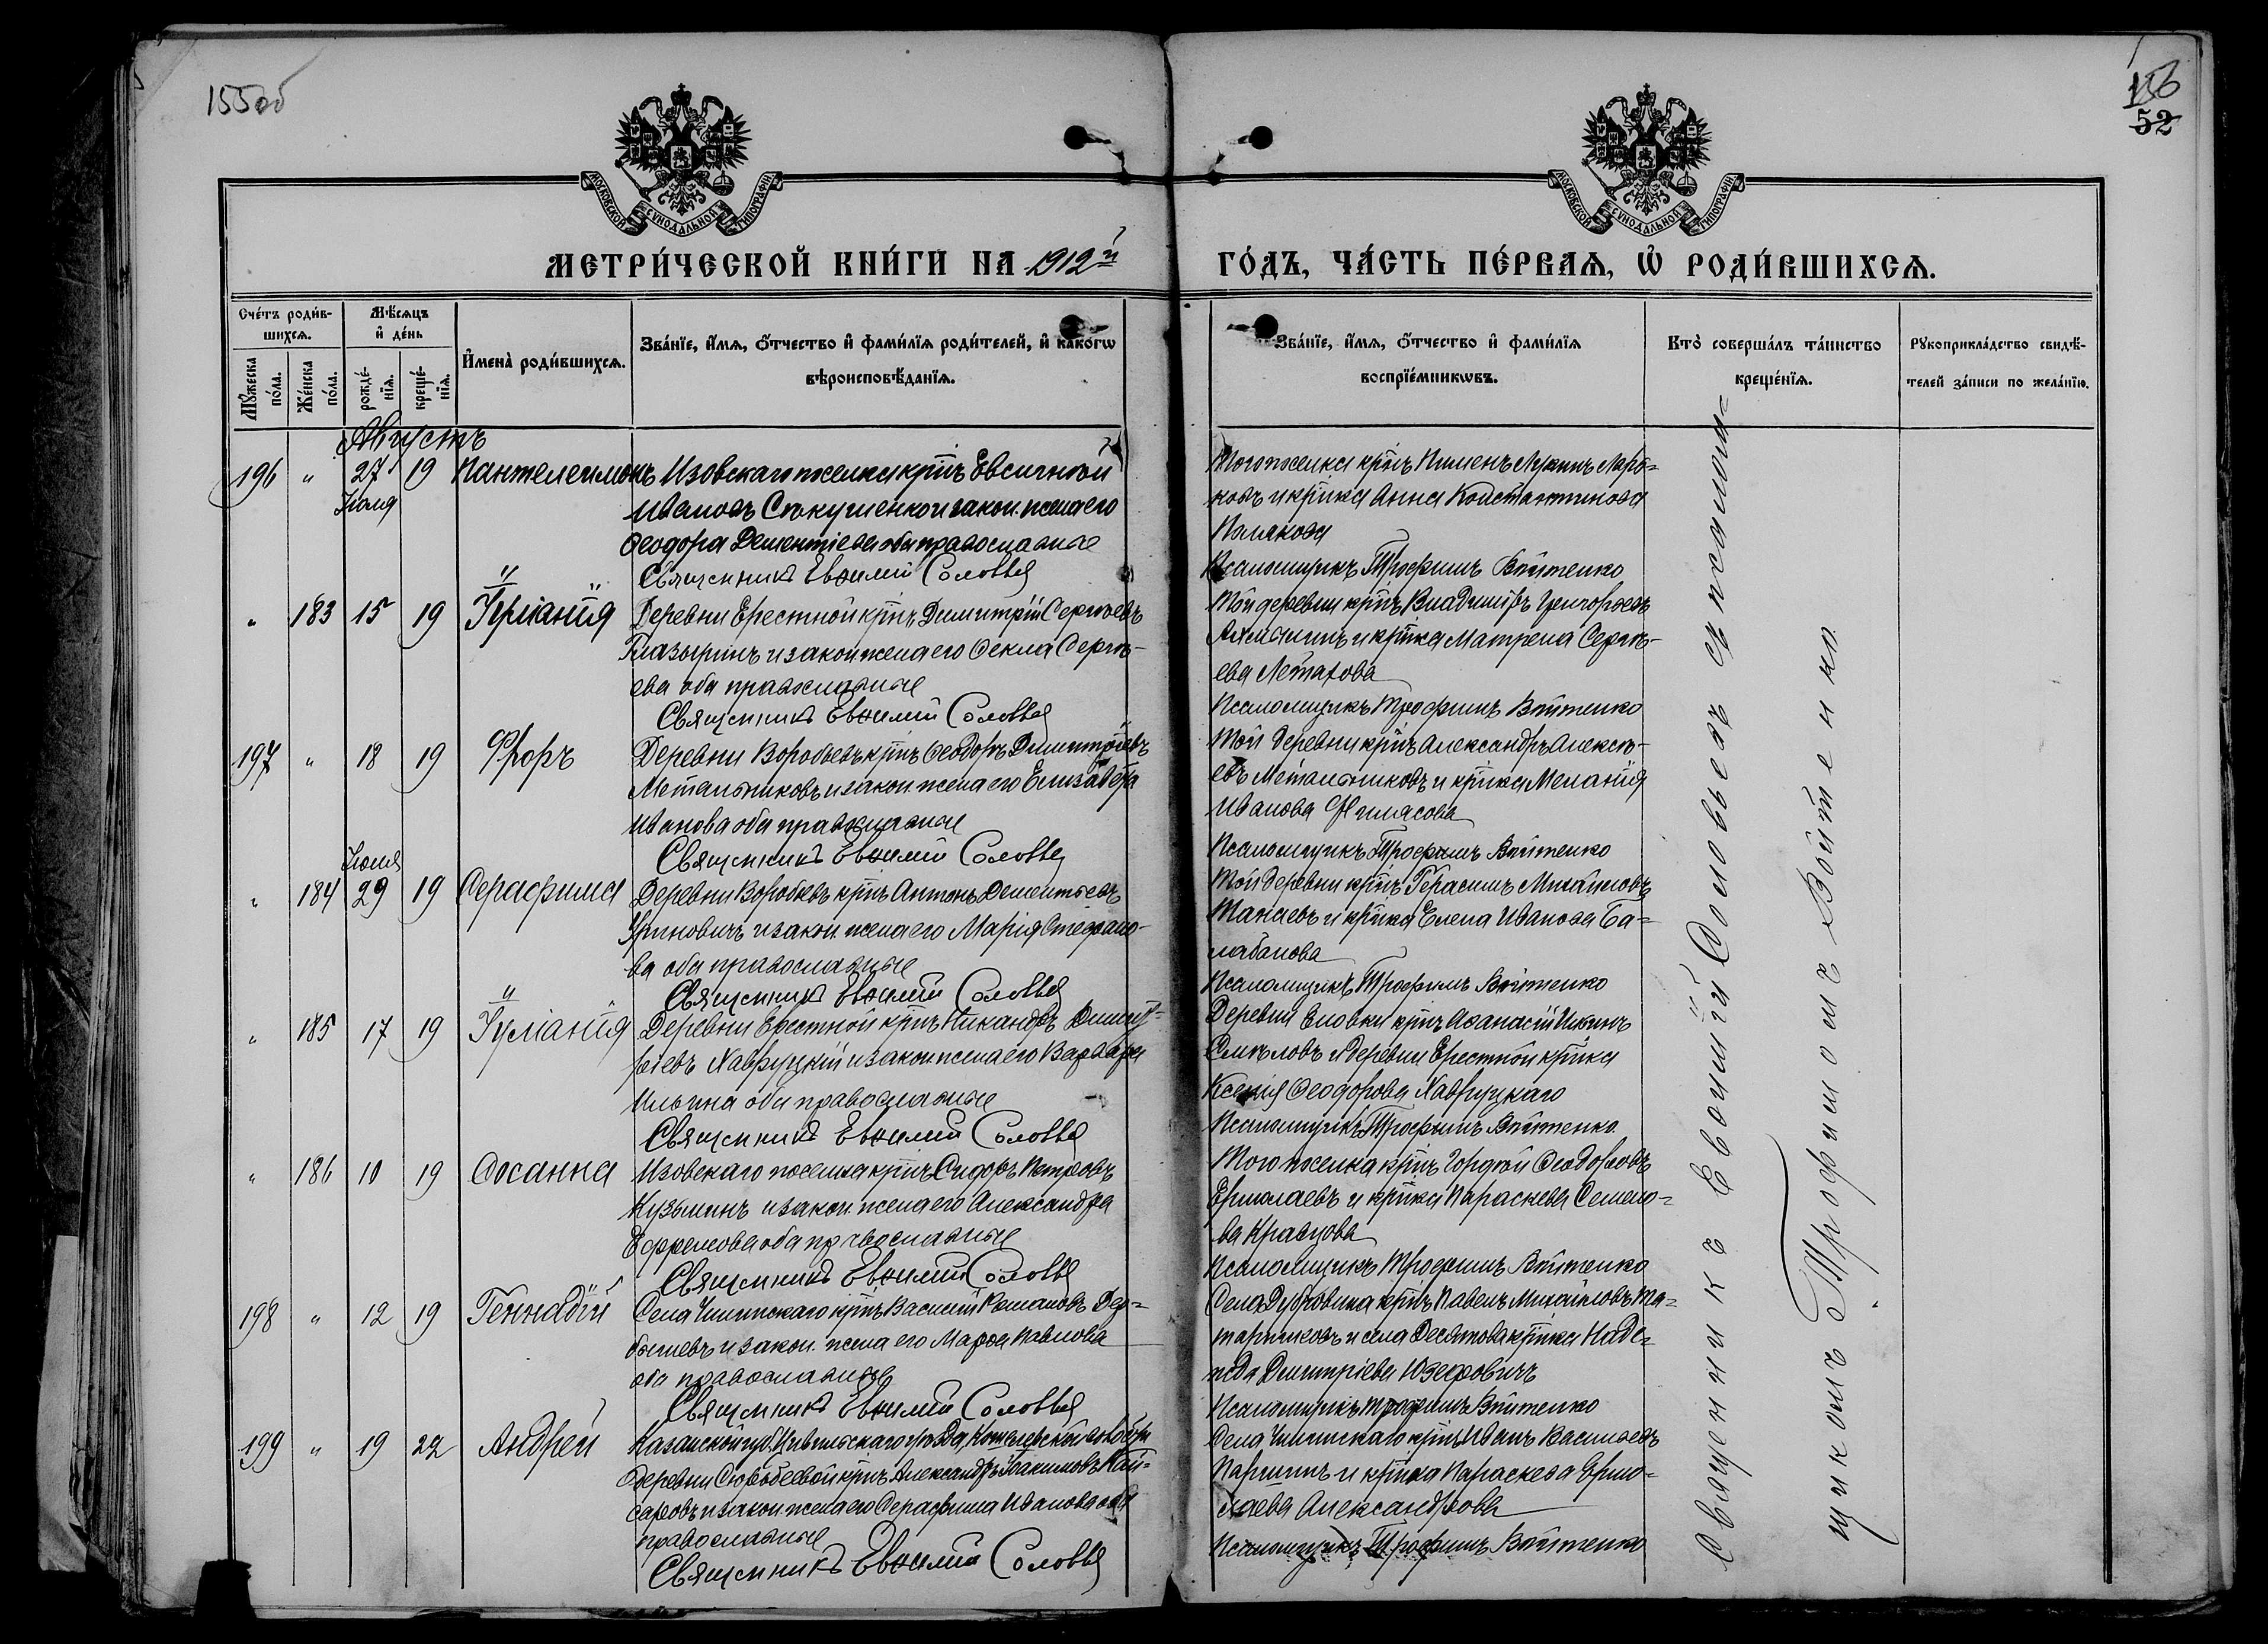 155об
156
52
МОСКОВСКОЙ СѴНОДАЛЬНОЙ ТИПОГРАФІИ
МОСКОВСКОЙ СѴНОДАЛЬНОЙ ТИПОГРАФІИ
МЕТРИ́ЧЕСКОЙ КНИ́ГИ НА 1912й
ГО́ДЪ, ЧА́СТЬ ПЕ́РВАѦ, Ѽ РОДИ́ВШИХСѦ.
Сче́тъ роди́в-
шихсѧ.
Мꙋ́жеска по́ла.
Же́нска по́ла.
Мѣ́сѧцъ
и҆ де́нь
рожде́-
нїѧ.
креще́-
нїѧ.
И҆мена̀ роди́вшихсѧ.
Зва́нїе, и҆́мѧ, ѻ҆́тчество и҆ фами́лїѧ роди́телей, и҆ како́гѡ
вѣроисповѣ́данїѧ.
Зва́нїе, и҆́мѧ, ѻ҆́тчество и҆ фами́лїѧ
воспрїе́мникѡвъ.
Кто̀ соверша́лъ та́инство
креще́нїѧ.
Рꙋкоприкла́дство свидѣ́-
телей за́писи по жела́нїю.
Августъ
196 " 27 19 Пантелеимонъ
Іюля
Изовскаго поселка крнъ Евсигній
Ивановъ Сокушенко и закон. жена его
Ѳеодора Дементіева оба православные
Священникъ Евѳимій Соловьев
Того поселка крнъ Пименъ Лукинъ Ларі=
новъ и крнка Анна Константинова
Полякова
Псаломщикъ Трофимъ Войтенко
" 183 15 19 Іуліанія
Деревни Ерестной крнъ Димитрій Сергѣевъ
Глазыринъ и закон жена его Ѳекла Сергѣ-
ева оба православные
Священникъ Евѳимій Соловьев
Той деревни крнъ Владиміръ Григорьевъ
Ахманинъ и крнка Матрена Сергѣ-
ева
Псаломщикъ Трофимъ Войтенко
197 " 18 19 Флоръ
Деревни Воробьевъ крнъ Ѳеодоръ Димитріевъ
Метальниковъ и закон жена его Елизавета
Иванова оба православные
Священникъ Евѳимій Соловьев
Той деревни крнъ Александръ Алексѣ-
евъ Метальниковъ и крнка Меланія
Иванова
Псаломщикъ Трофимъ Войтенко
Іюля
" 184 29 19 Серафима
Деревни Воробьевъ крнъ Антонъ Дементьевъ
Гриновичъ и закон. жена его Марія Стефано-
ва оба православные
Священникъ Евѳимій Соловьев
Той деревни крнъ Герасимъ Михайловъ
Танаевъ и крнка Елена Иванова Ба=
лабанова
Псаломщикъ Трофимъ Войтенко
" 185 17 19 Іуліанія
Деревни Ерестной крнъ Никандръ Димит-
ріевъ Хаврущкій и закон жена его Варвара
Ильина оба православные
Священникъ Евѳимій Соловьев
Деревни Еловки крнъ Аѳанасій Ильинъ
Смѣловъ и деревни Ерестной крнка
Ксенія Ѳеодорова Хаврущкаго
Псаломщикъ Трофимъ Войтенко
" 186 10 19 Сосанна
Изовскаго поселка крнъ Сидоръ Петровъ
Кузьминъ и закон. жена его Александра
Ефремова оба православные
Священникъ Евѳимій Соловьев
Того поселка крнъ Гордѣй Ѳеодоровъ
Ермолаевъ и крнка Параскева Семено-
ва Кравцова
Псаломщикъ Трофимъ Войтенко
198 " 12 19 Геннадій
Села крнъ Василій Романовъ Дер-
бышевъ и закон. жена его Марѳа Павлова
оба православные
Священникъ Евѳимій Соловьев
Села Дубровина крнъ Павелъ Михайловъ Та-
тариковъ и села Десятова крнка Наде-
жда Димитріева Юзефовичъ
Псаломщикъ Трофимъ Войтенко
199 " 19 22 Андрей
Казанской губ. Цивильскаго уѣзда, волости
деревни крнъ Александръ Іоакимовъ Кай-
саровъ и закон жена его Серафима Иванова оба
православные
Священникъ Евѳимій Соловьев
Села крнъ Иванъ Васильевъ
Паршинъ и крнка Параскева Ермо-
лаева Александрова
Псаломщикъ Трофимъ Войтенко
Священникъ Евѳимій Соловьевъ съ псалом-
щикомъ Трофимомъ Войтенко.